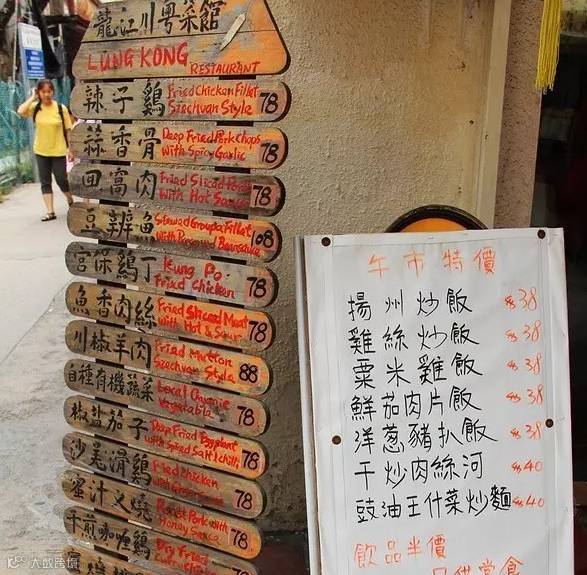 龍江川粵菜館
LUNG KONG
RESTAURANT
辣子鷄
Fried Chicken Fillet
Szechuan Style
78
蒜香骨
Deep Fried Pork Chops
With Spicy Garlic
78
回窩肉
Fried Sliced Pork
With Hot Sauce
78
豆辨魚
Stewed Groupa Fillet
With Beansauce
108
宮保鷄丁
Kung Po
Fried Chicken
78
魚香肉絲
Fried Sliced Meat
with Hot & Sour
78
川椒羊肉
Fried Mutton
Szechuan Style
88
自種有機蔬菜
Local Organic
Vegetable
78
椒鹽茄子
Deep Fried Eggplant
with Spiced Salt & Chili
78
沙羌滑鷄
Fried Chicken
78
蜜汁叉燒
Roast Pork With
Honey Sauce
78
干煎咖喱鷄
Dry Fried
78
午市特價
揚州炒飯 $38
雞絲炒飯 $38
粟米雞飯 $38
鮮茄肉片飯 $38
洋葱豬扒飯 $38
干炒肉絲河 $40
豉油王什菜炒麵 $40
飲品半價